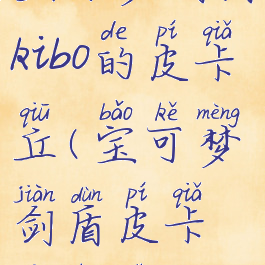 de pí qiǎ
kibo的皮卡
qiū bǎo kě mèng
丘(宝可梦
jiàn dùn pí qiǎ
剑盾皮卡